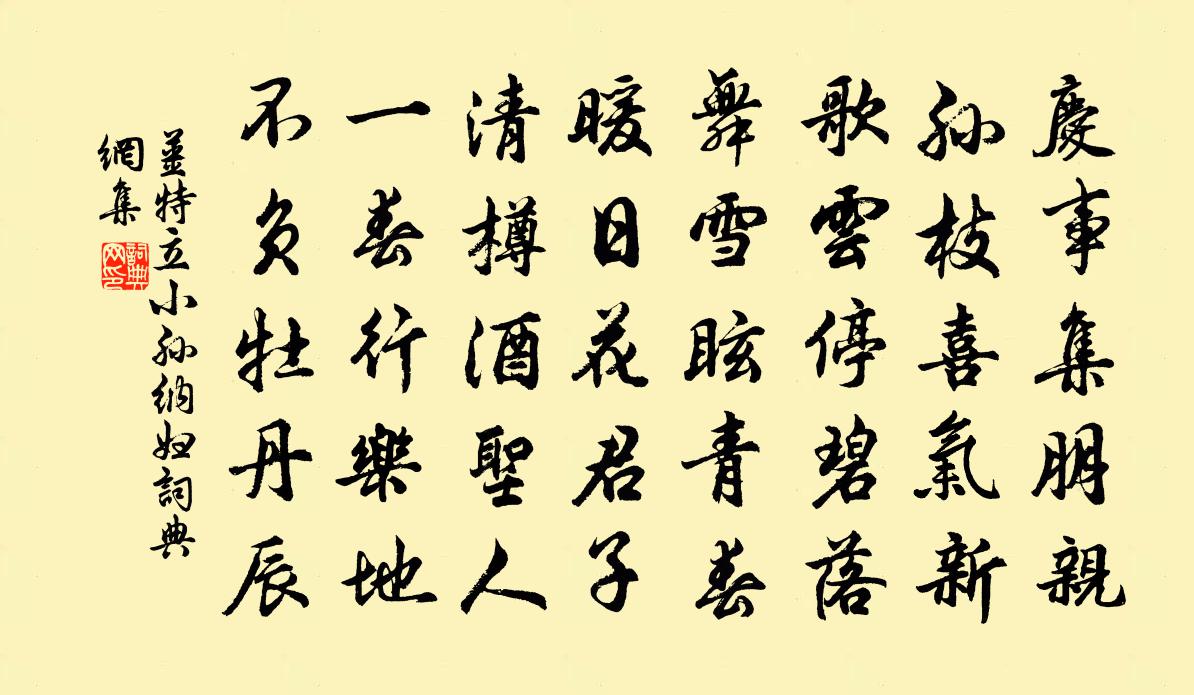 慶事集朋親
孫枝喜氣新
歌雲停碧落
舞雪眩青春
暖日花君子
清樽酒聖人
一春行樂地
不負牡丹辰
薑特立小孫納妇詞典
網集
詞典网印